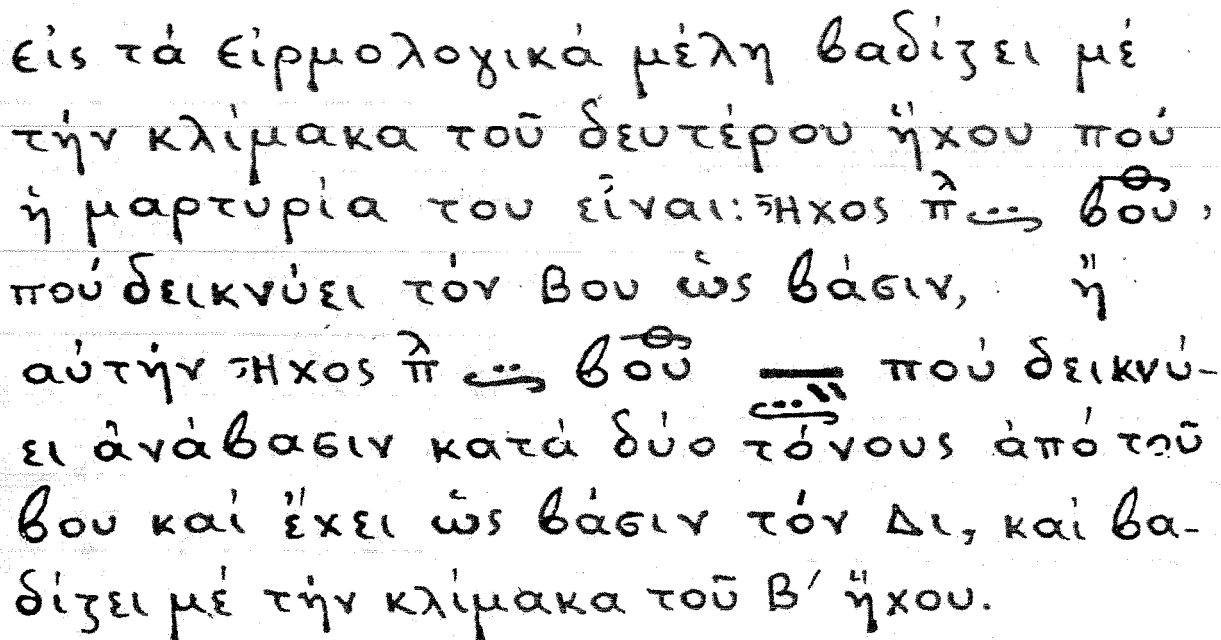 εἰς τά εἰρμολογικά μέλη βαδίζει μέ
τήν κλίμακα τοῦ δευτέρου ἤχου πού
ἡ μαρτυρία του εἶναι: Ἦχος πλ βου,
πού δεικνύει τόν Βου ὡς βάσιν, ἤ
αὐτήν Ἦχος πλ βου πού δεικνύ-
ει ἀνάβασιν κατά δύο τόνους ἀπό τοῦ
βου καί ἔχει ὡς βάσιν τόν Δι, καί βα-
δίζει μέ τήν κλίμακα τοῦ Β΄ ἤχου.